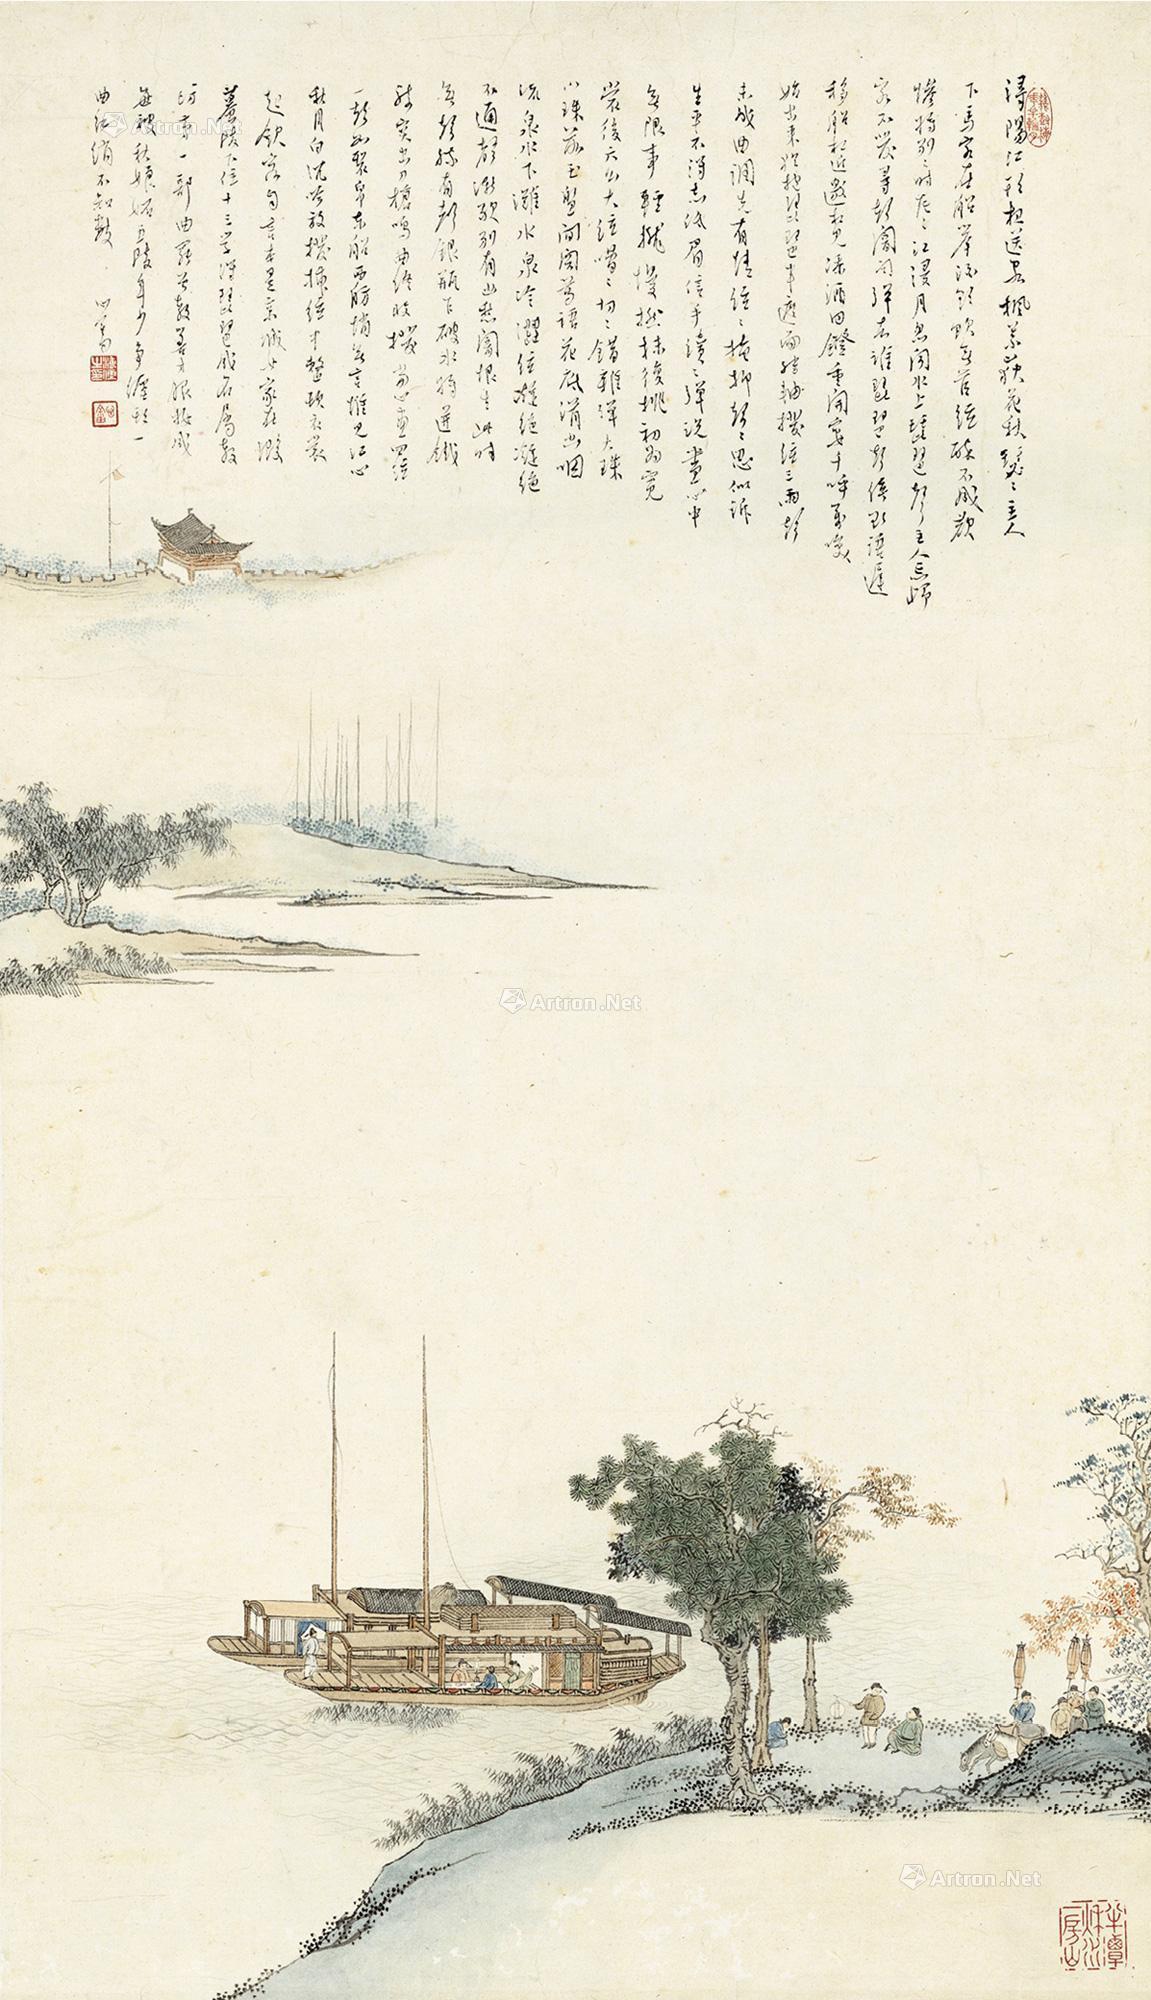 潯陽江頭夜送客楓葉荻花秋瑟〻主人
下馬客在船舉酒欲飲無管絃醉不成歡
慘將別〻時茫〻江浸月忽聞水上琵琶聲主人忘歸
客不發尋聲闇問彈者誰琵琶聲停欲語遲
移船相近邀相見添酒回鐙重開宴千呼萬喚
始出來猶抱琵琶半遮面轉軸撥絃三兩聲
未成曲調先有情絃〻掩抑聲〻思似訴
生平不得志低眉信手續〻彈說盡心中
無限事輕攏慢撚抹復挑初為霓
裳後六幺大絃嘈〻切〻錯雜彈大珠
小珠落玉盤間關鶯語花底滑幽咽
流泉水下灘水泉冷澀絃凝絕凝絕
不通聲漸歇別有幽愁闇恨生此時
無聲勝有聲銀瓶乍破水漿迸鐵
騎突出刀槍鳴曲終收撥當心畫四絃
一聲如裂帛東船西舫悄無言惟見江心
秋月白沉吟放撥插絃中整頓衣裳
起斂容自言本是京城女家在蝦
蟇陵下住十三學得琵琶成名屬教
坊第一部曲罷曾教善才服妝成
每被秋娘妬五陵年少爭纏頭一
曲紅綃不知數 心畬
半潭秋水一房山
Artron.Net
Artron.Net
Artron.Net